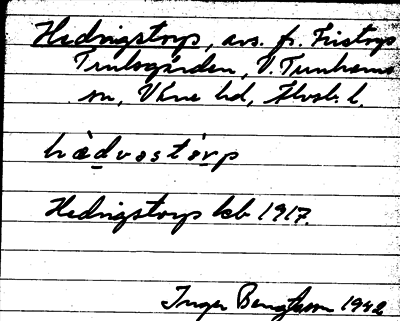 Hedvigstorp, avs. fr. Fristorp
Trulsgården, V. Tunhems
sn, Väne hd, Älvsb. l.
hædvastòrp
Hedvigstorp kb 1917.
Inger Bengtsson 1942